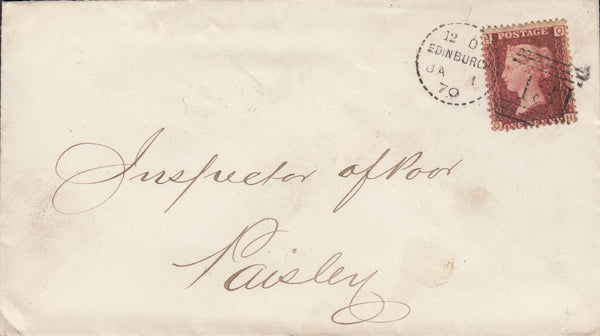 12 O
EDINBURGH
JA 1
70
POSTAGE
ONE PENNY
Inspector of Poor
Paisley